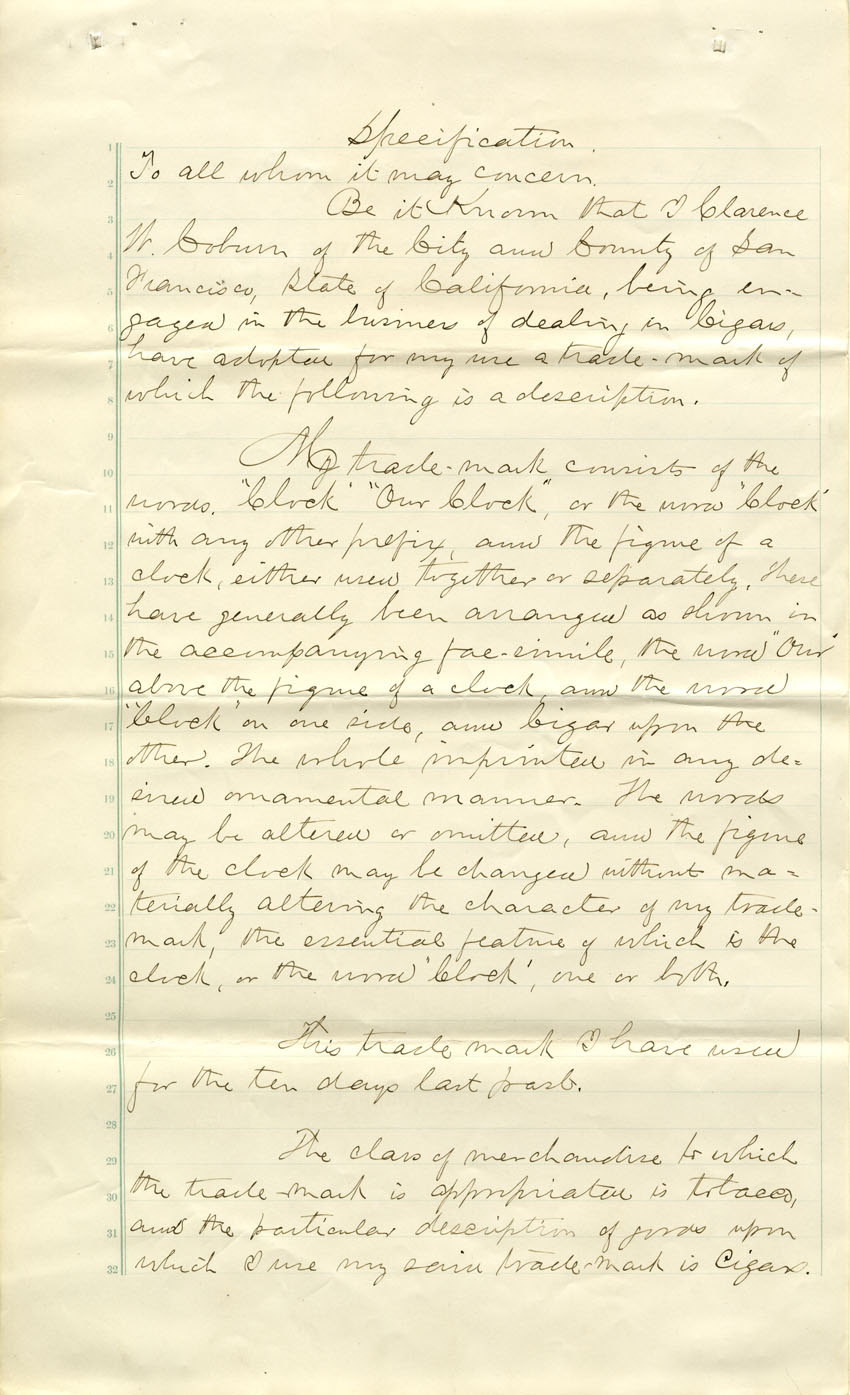 Specification.
1
To all whom it may concern.
2
Be it Known that I Clarence
3
W. Coburn of the City and County of San
4
Francisco, State of California, being en-
5
gaged in the business of dealing in Cigars,
6
have adopted for my use a trade-mark of
7
which the following is a description.
8
9
My trade-mark consists of the
10
words. "Clock" "Our Clock", or the word "Clock"
11
with any other prefix, and the figure of a
12
clock, either used together or separately. These
13
have generally been arranged as shown in
14
the accompanying fac-simile, the word "Our"
15
above the figure of a clock, and the word
16
"Clock" on one side, and Cigar upon the
17
other. The whole imprinted in any de=
18
sired ornamental manner. The words
19
may be altered or omitted, and the figure
20
of the clock may be changed without ma=
21
terially altering the character of my trade-
22
mark, the essential feature of which is the
23
clock, or the word 'Clock', one or both.
24
25
This trade mark I have used
26
for the ten days last past.
27
28
The class of merchandise to which
29
the trade-mark is appropriated is tobacco,
30
and the particular description of goods upon
31
which I use my said trade-mark is Cigars.
32